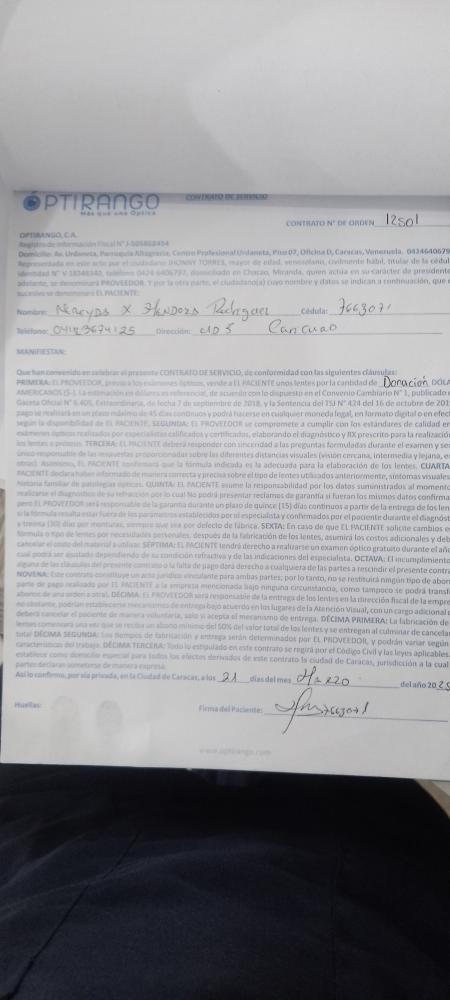 ÓPTIRANGO
Más que una Óptica
CONTRATO DE SERVICIO
CONTRATO N° DE ORDEN 12501
OPTIRANGO, C.A.
Registro de Información Fiscal N° J-505868454
Domicilio: Av. Urdaneta, Parroquia Altagracia, Centro Profesional Urdaneta, Piso 07, Oficina D, Caracas, Venezuela. 0424640679
Representada en este acto por el ciudadano JHONNY TORRES, mayor de edad, venezolano, civilmente hábil, titular de la cédul
identidad N° V 18348340, teléfono 0424 6406797, domiciliado en Chacao, Miranda, quien actúa en su carácter de presidente
adelante, se denominará PROVEEDOR. Y por la otra parte, el ciudadano(a) cuyo nombre y datos se indican a continuación, que e
sucesivo se denominará EL PACIENTE:
Nombre: X Cédula: 7663071
Teléfono: 04123674125 Dirección: UD5
MANIFIESTAN:
Que han convenido en celebrar el presente CONTRATO DE SERVICIO, de conformidad con las siguientes cláusulas:
PRIMERA: EL PROVEEDOR, previo a los exámenes ópticos, vende a EL PACIENTE unos lentes por la cantidad de Donación DÓLA
AMERICANOS ($-). La estimación en dólares es referencial, de acuerdo con lo dispuesto en el Convenio Cambiario N° 1, publicado e
Gaceta Oficial N° 6.405, Extraordinaria, de fecha 7 de septiembre de 2018, y la Sentencia del TSJ N° 424 del 16 de octubre de 201
pago se realizará en un plazo máximo de 45 días continuos y podrá hacerse en cualquier moneda legal, en formato digital o en efec
según la disponibilidad de EL PACIENTE. SEGUNDA: EL PROVEEDOR se compromete a cumplir con los estándares de calidad en
exámenes ópticos realizados por especialistas calificados y certificados, elaborando el diagnóstico y RX prescrito para la realizació
los lentes o prótesis. TERCERA: EL PACIENTE deberá responder con sinceridad a las preguntas formuladas durante el examen y se
único responsable de las respuestas proporcionadas sobre las diferentes distancias visuales (visión cercana, intermedia y lejana, e
otras). Asimismo, EL PACIENTE confirmará que la fórmula indicada es la adecuada para la elaboración de los lentes. CUARTA
PACIENTE declara haber informado de manera correcta y precisa sobre el tipo de lentes utilizados anteriormente, síntomas visuales
historia familiar de patologías ópticas. QUINTA: EL PACIENTE asume la responsabilidad por los datos suministrados al moment
realizarse el diagnóstico de su refracción por lo cual No podrá presentar reclamos de garantía si fueran los mismos datos confirma
pero EL PROVEEDOR será responsable de la garantía durante un plazo de quince (15) días continuos a partir de la entrega de los len
si la fórmula resulta estar fuera de los parámetros establecidos por el especialista y confirmados por el paciente durante el diagnóst
y treinta (30) días por monturas, siempre que sea por defecto de fábrica. SEXTA: En caso de que EL PACIENTE solicite cambios e
fórmula o tipo de lentes por necesidades personales, después de la fabricación de los lentes, asumirá los costos adicionales y deb
cancelar el costo del material a utilizar. SÉPTIMA: EL PACIENTE tendrá derecho a realizarse un examen óptico gratuito durante el año
cual podrá ser ajustado dependiendo de su condición refractiva y de las indicaciones del especialista. OCTAVA: El incumplimiento
alguna de las cláusulas del presente contrato o la falta de pago dará derecho a cualquiera de las partes a rescindir el presente contra
NOVENA: Este contrato constituye un acto jurídico vinculante para ambas partes; por lo tanto, no se restituirá ningún tipo de abon
parte de pago realizado por EL PACIENTE a la empresa mencionada bajo ninguna circunstancia, como tampoco se podrá transf
abonos de una orden a otra). DÉCIMA: EL PROVEEDOR será responsable de la entrega de los lentes en la dirección fiscal de la empre
no obstante, podrían establecerse mecanismos de entrega bajo acuerdo en los lugares de la Atención Visual, con un cargo adicional
deberá cancelar el paciente de manera voluntaria, solo si acepta el mecanismo de entrega. DÉCIMA PRIMERA: La fabricación de
lentes comenzará una vez que se reciba un abono mínimo del 50% del valor total de los lentes y se entregan al culminar de cancelar
total DÉCIMA SEGUNDA: Los tiempos de fabricación y entrega serán determinados por EL PROVEEDOR, y podrán variar según
características del trabajo. DÉCIMA TERCERA: Todo lo estipulado en este contrato se regirá por el Código Civil y las leyes aplicables.
establece como domicilio especial para todos los efectos derivados de este contrato la ciudad de Caracas, jurisdicción a la cual
partes declaran someterse de manera expresa.
Así lo confirmo, por vía privada, en la Ciudad de Caracas, a los 21 días del mes Marzo del año 2025
Huellas: Firma del Paciente: 7663071
www.optirango.com